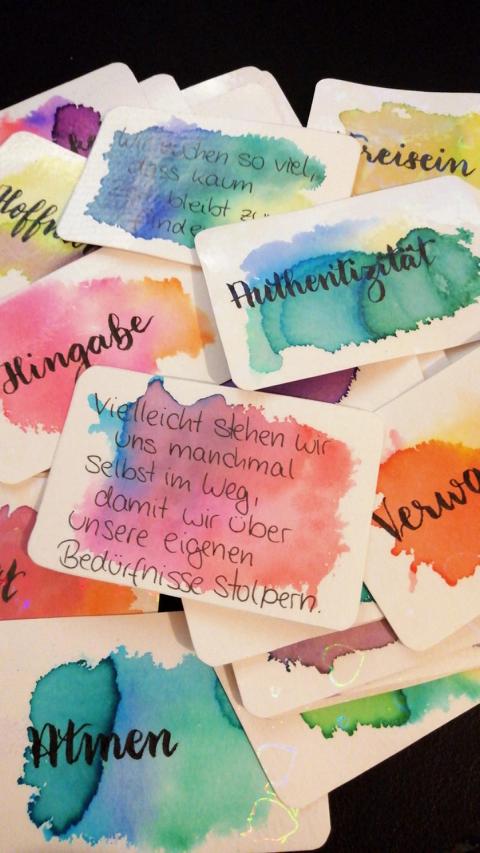 wir suchen so viel,
dass kaum
bleibt zu
reisein
Hoffn
Authentizität
Hingabe
Vielleicht stehen wir
uns manchmal
selbst im Weg,
damit wir über
unsere eigenen
Bedürfnisse stolpern.
Verwa
Atmen